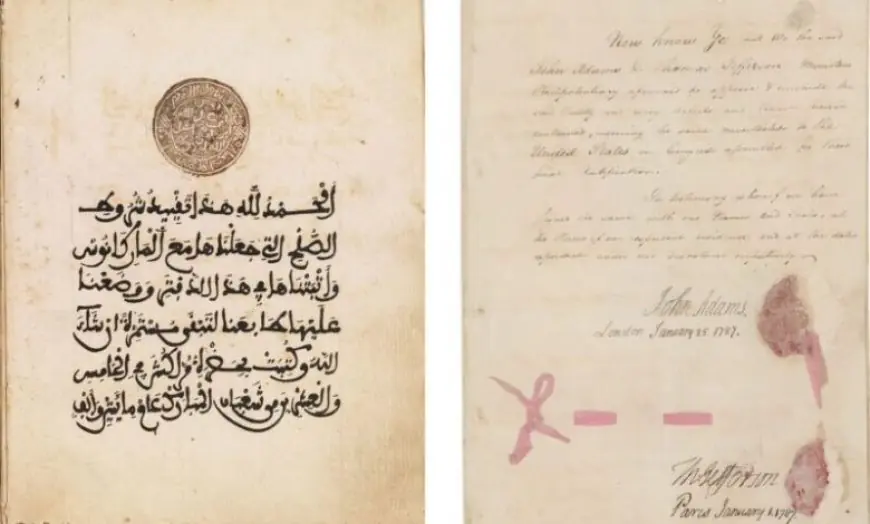 الحمد لله هذا تقييد شروط
الصلح التي جعلناها مع ألماركانوس
وأثبتناها في هذا الدفتر ووضعنا
عليها طابعنا لتبقى مستمرة إن شاء
الله وكتبت في الخامس
والعشرين من شعبان المبارك عام مائتين وألف
Now know Ye that We the said
John Adams & Thomas Jefferson Ministers
Plenipotentiary do approve & conclude the
said Treaty and every article and clause therein
contained, reserving the same nevertheless to the
United States in Congress assembled for their
final Ratification.
In testimony whereof we have
signed the same with our Names and Seals, at
the places of our respective residence and at the dates
expressed under our signatures respectively.
John Adams.
London January 25. 1787.
Th Jefferson
Paris January 1. 1787